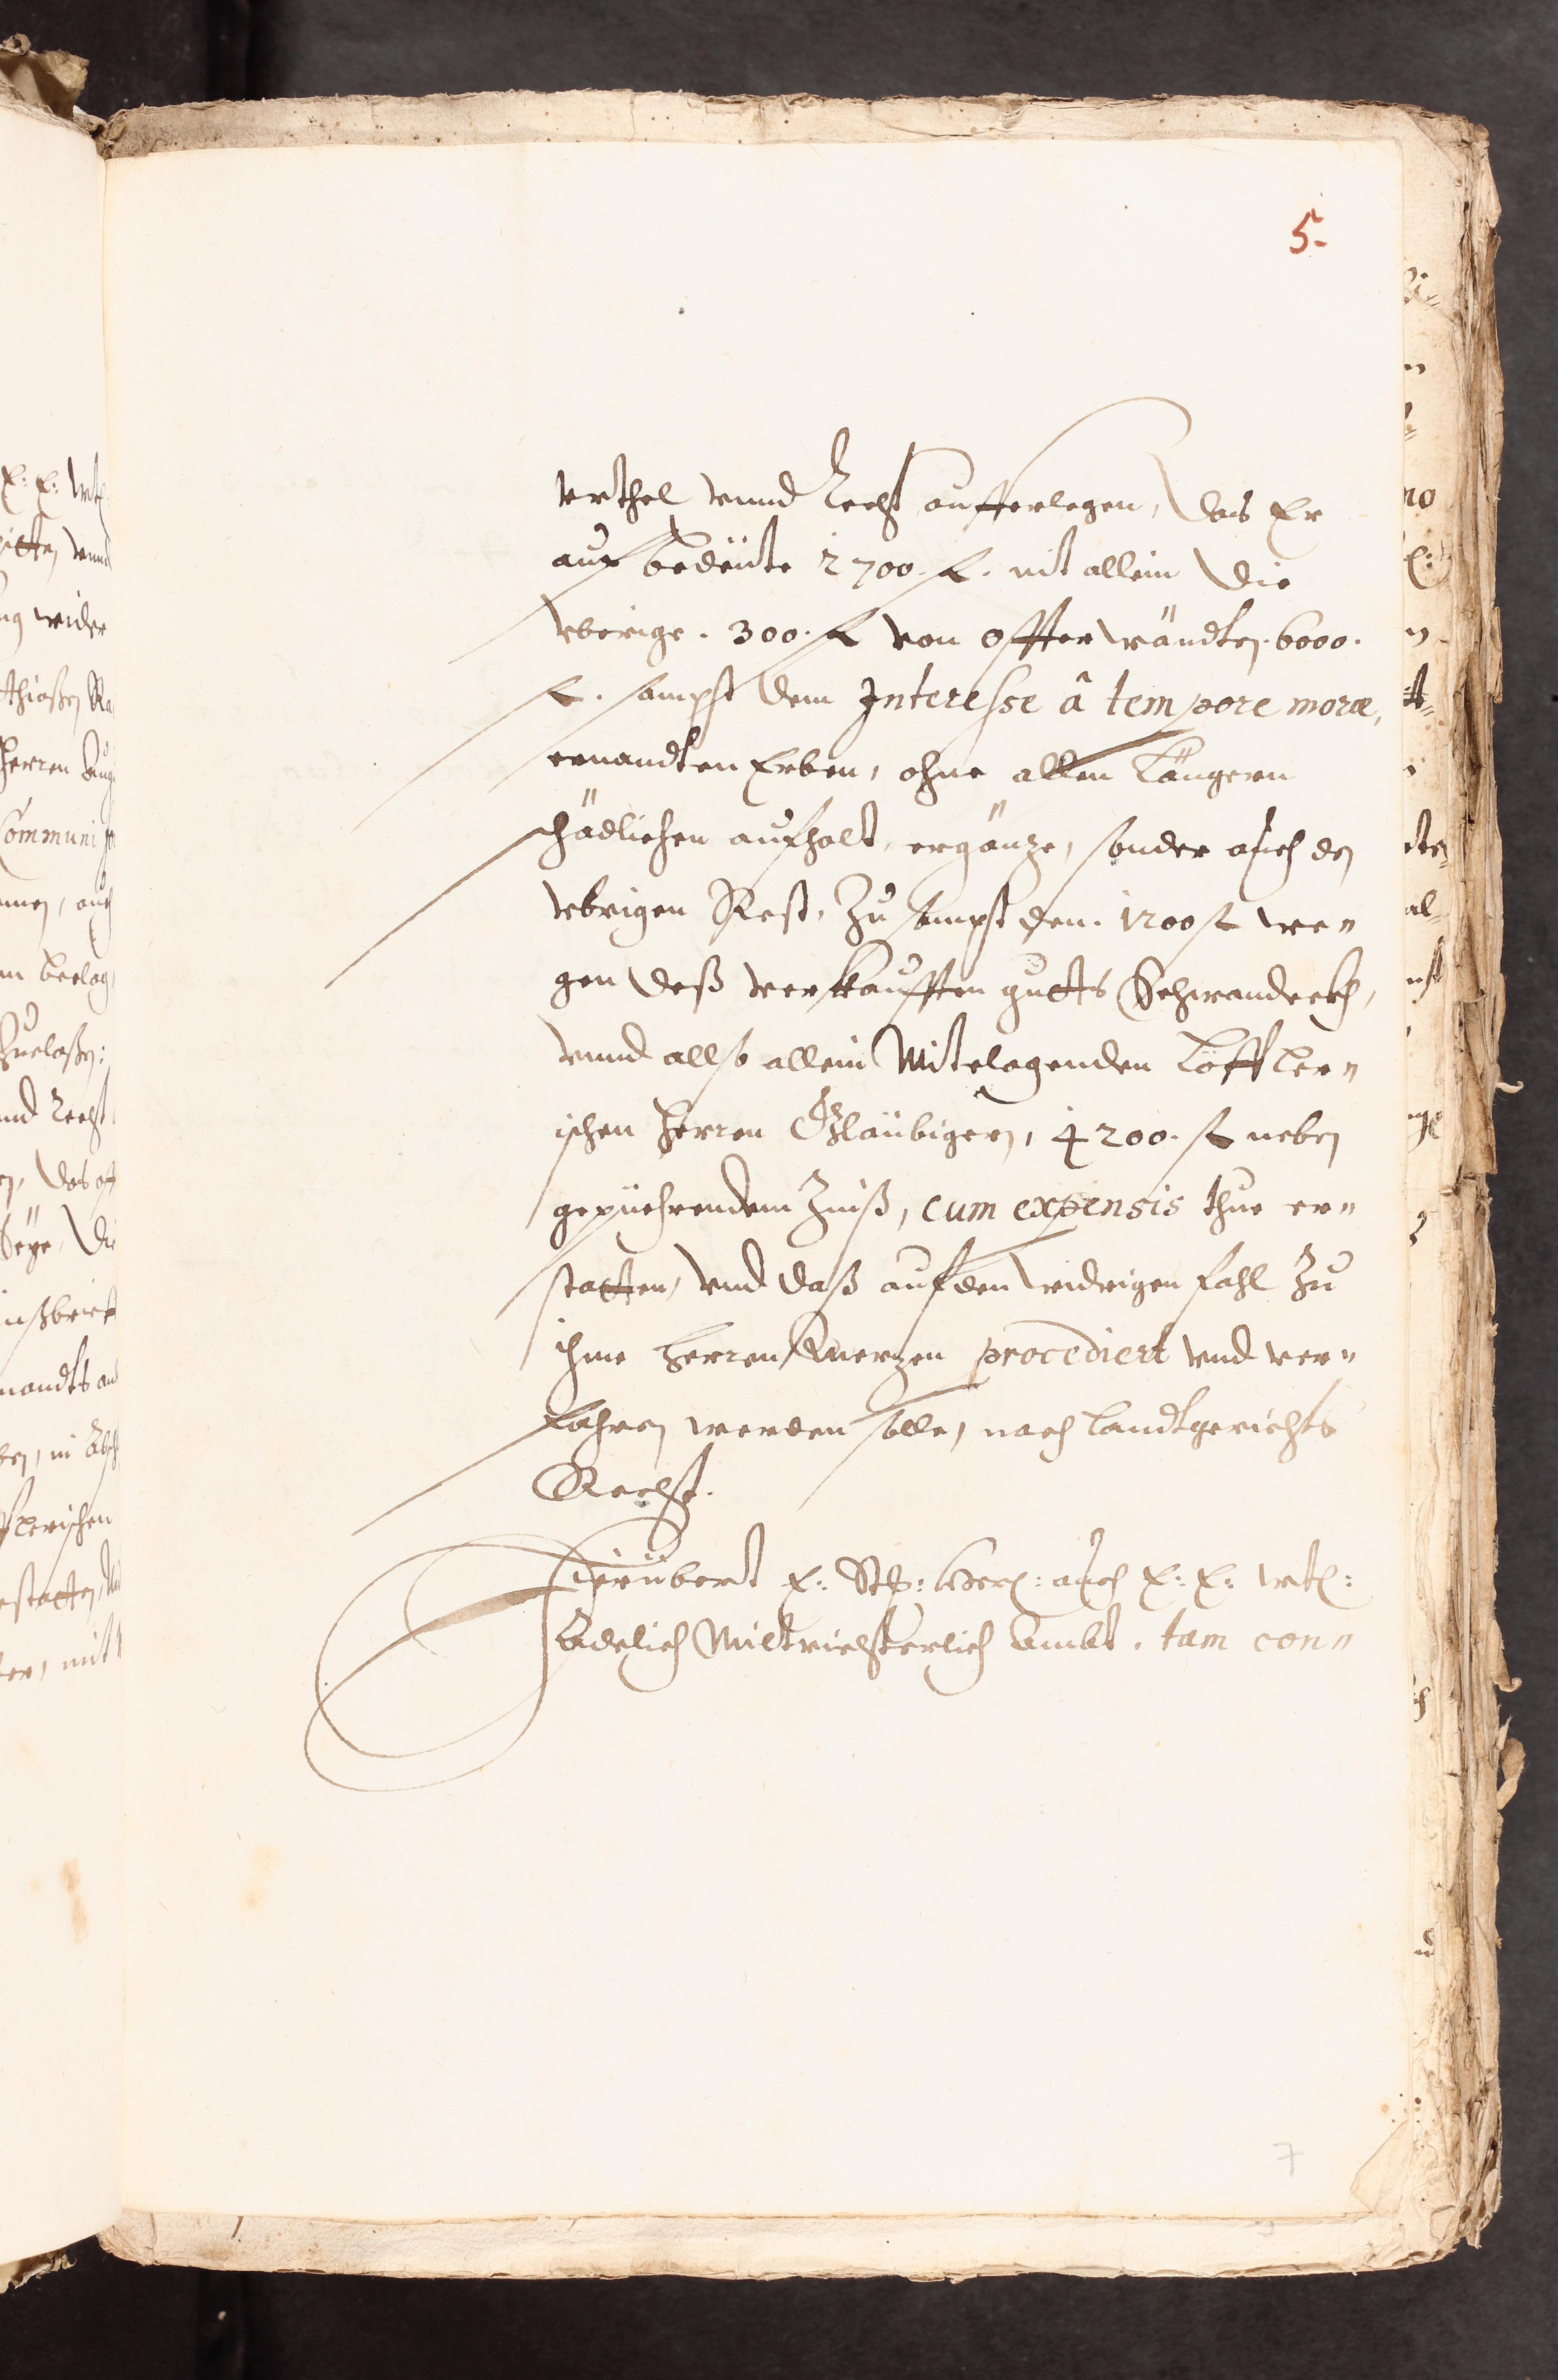 5.
vrthel vnnd Recht aufferlegen, das Er
auf bedeüte 2700. fl. nit allein die
vberige. 300. fl von offterwändten. 6000.
fl. sampt dem Interesse â tempore moræ,
ernandten Erben, ohne allen Längern
schädlichen aufhalt, ergänze, sonder auch den
vbrigen Rest, Zu sampt den. 1200 fl we„
gen deß verkaufften guetts Schwandeckh,
vnnd allso allein Mitclagenden Löffler„
ischen Herren Glaübigern, 4200. fl neben
gepüehrendem Zinß, cum expensis thue er„
statten, vnd daß auf den widrigen fahl Zu
ihme Herren Kuerzen procediert vnd ver„
fahren werden solle, nach Landtgerichts
Recht.
Hierübert E: Stg: Herl: auch E: E: vtl:
Adelich Miltrichterlich Ambt. tam con„
7